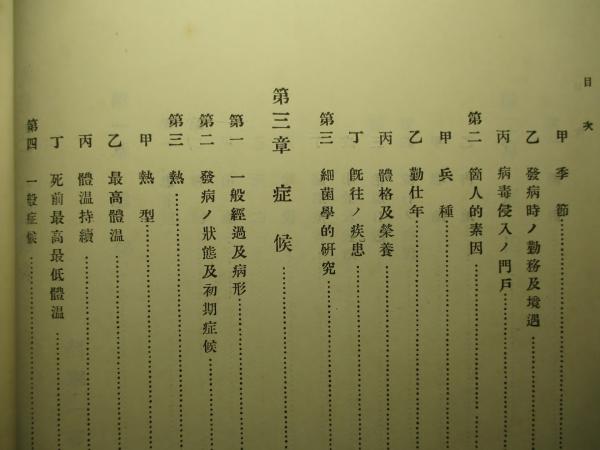 目次
甲 季節
乙 發病時ノ勤務及境遇
丙 病毒侵入ノ門戶
第二 箇人的素因
甲 兵種
乙 勤仕年
丙 體格及榮養
丁 旣往ノ疾患
第三 細菌學的硏究
第三章 症候
第一 一般經過及病形
第二 發病ノ狀態及初期症候
第三 熱
甲 熱型
乙 最高體溫
丙 體溫持續
丁 死前最高最低體溫
第四 一般症候